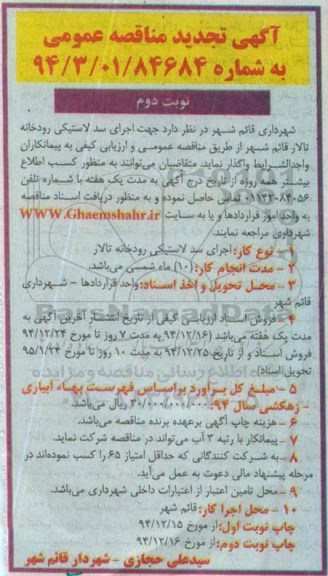 آگهی تجدید مناقصه عمومی
به شماره ۹۴/۳/۰۱/۸۴۶۸۴
نوبت دوم
شهرداری قائم شهر در نظر دارد جهت اجرای سد لاستیکی رودخانه
تالار قائم شهر از طریق مناقصه عمومی و ارزیابی کیفی به پیمانکاران
واجدالشرایط واگذار نماید. متقاضیان می‌توانند به منظور کسب اطلاع
بیشتر همه روزه از تاریخ درج آگهی به مدت یک هفته با شماره تلفن
۰۱۱۳۳-۸۴۰۵۶ تماس حاصل نموده و به منظور دریافت اسناد مناقصه
به واحد امور قراردادها و یا به سایت www.Ghaemshahr.ir
شهرداری مراجعه نمایند.
۱ - نوع کار: اجرای سد لاستیکی رودخانه تالار
۲ - مدت انجام کار: (۱۰) ماه شمسی می‌باشد.
۳ - محل تحویل و اخذ اسناد: واحد قراردادها - شهرداری
قائم شهر
۴ - فروش اسناد ارزیابی کیفی از تاریخ انتشار آخرین آگهی به
مدت یک هفته می‌باشد (۹۴/۱۲/۱۶ به مدت ۷ روز تا مورخ ۹۴/۱۲/۲۴
فروش اسناد و از تاریخ ۹۴/۱۲/۲۵ به مدت ۱۰ روز تا مورخ ۹۵/۱/۲۴
تحویل اسناد)
۵ - مبلغ کل برآورد براساس فهرست بهاء آبیاری
زهکشی سال ۹۴: ۳۰/۰۰۰/۰۰۰/۰۰۰ ریال می‌باشد.
۶ - هزینه چاپ آگهی برعهده برنده مناقصه می‌باشد.
۷ - پیمانکار با رتبه ۳ آب می‌تواند در مناقصه شرکت نماید.
۸ - به شرکت کنندگانی که حداقل امتیاز ۶۵ را کسب نموده‌اند در
مرحله پیشنهاد مالی دعوت به عمل می‌آید.
۹ - محل تامین اعتبار از اعتبارات داخلی شهرداری می‌باشد.
۱۰ - محل اجرا کار: قائم شهر
چاپ نوبت اول: از مورخ ۹۴/۱۲/۱۵
چاپ نوبت دوم: از مورخ ۹۴/۱۲/۱۶
سیدعلی حجازی - شهردار قائم شهر